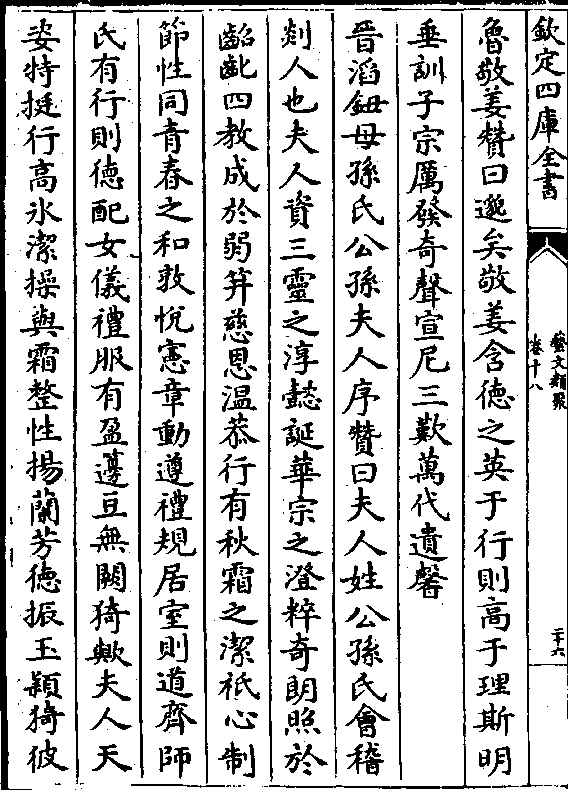 欽定四庫全書
藝文類聚
卷十八
二十六
魯敬姜贊曰邈矣敬姜含德之英于行則高于理斯明
垂訓子宗厲發奇聲宣尼三歎萬代遺馨
晉滔鈕母孫氏公孫夫人序贊曰夫人姓公孫氏會稽
剡人也夫人資三靈之淳懿誕華宗之澄粹奇朗照於
齠齔四教成於弱笄慈恩温恭行有秋霜之潔祇心制
節性同青春之和敦悅憲章動遵禮規居室則道齊師
氏有行則德配女儀禮服有盈籩豆無闕猗歟夫人天
姿特挺行高氷潔操與霜整性揚蘭芳德振玉穎猗彼